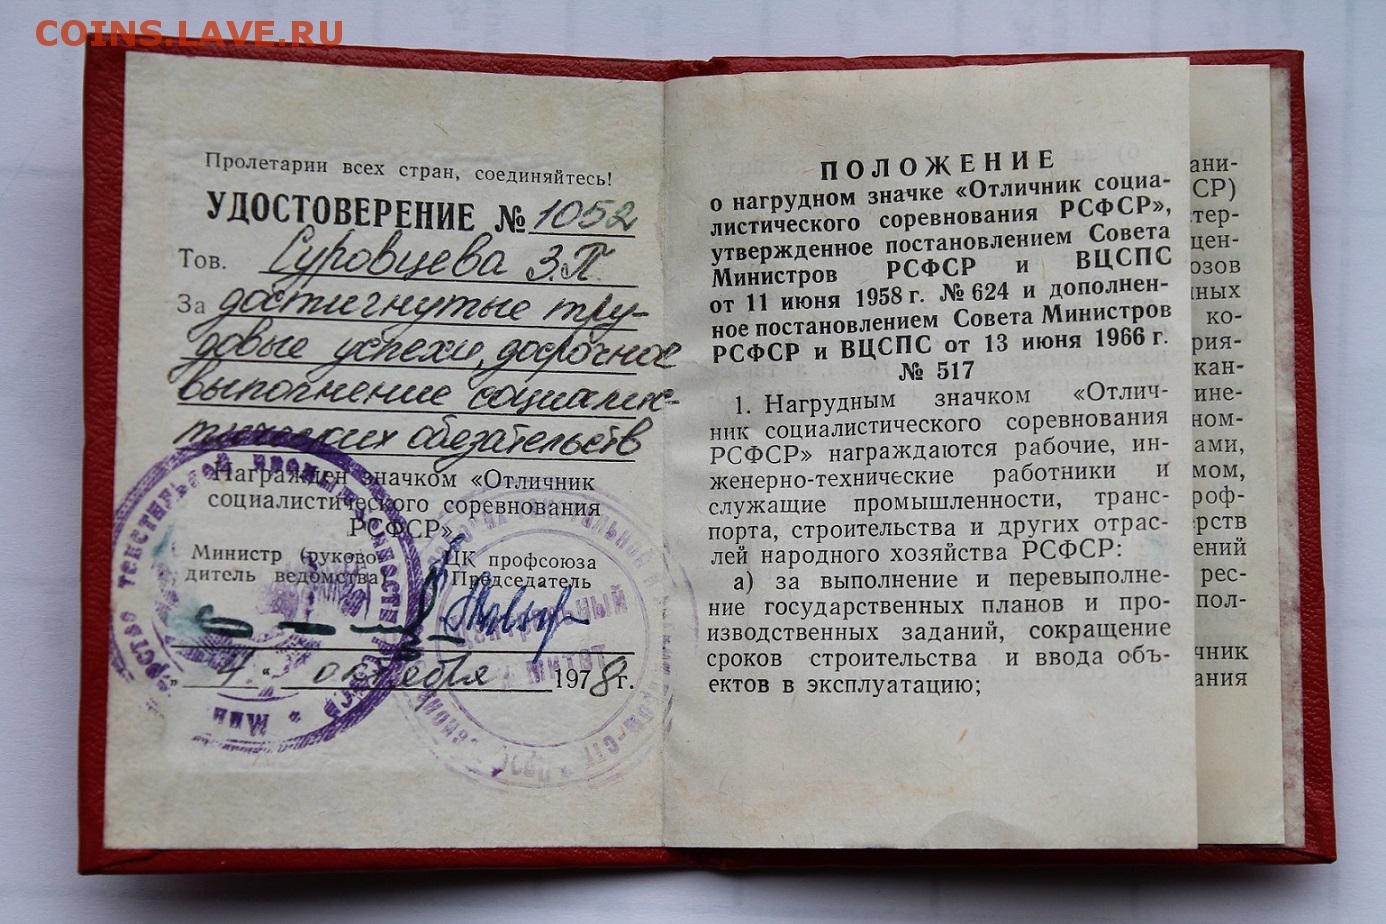 COINS.LAVE.RU
Пролетарии всех стран, соединяйтесь!
УДОСТОВЕРЕНИЕ № 1052
Тов. Суровцева З.П.
За достигнутые тру-
довые успехи, досрочное
выполнение социалис-
тических обязательств
Награжден значком «Отличник
социалистического соревнования
РСФСР»
Министр (руково-
дитель ведомства)
ЦК профсоюза
Председатель
октября 1978 г.
ПОЛОЖЕНИЕ
о нагрудном значке «Отличник социа-
листического соревнования РСФСР»,
утвержденное постановлением Совета
Министров РСФСР и ВЦСПС
от 11 июня 1958 г. № 624 и дополнен-
ное постановлением Совета Министров
РСФСР и ВЦСПС от 13 июня 1966 г.
№ 517
1. Нагрудным значком «Отлич-
ник социалистического соревнования
РСФСР» награждаются рабочие, ин-
женерно-технические работники и
служащие промышленности, транс-
порта, строительства и других отрас-
лей народного хозяйства РСФСР:
а) за выполнение и перевыполне-
ние государственных планов и про-
изводственных заданий, сокращение
сроков строительства и ввода объ-
ектов в эксплуатацию;